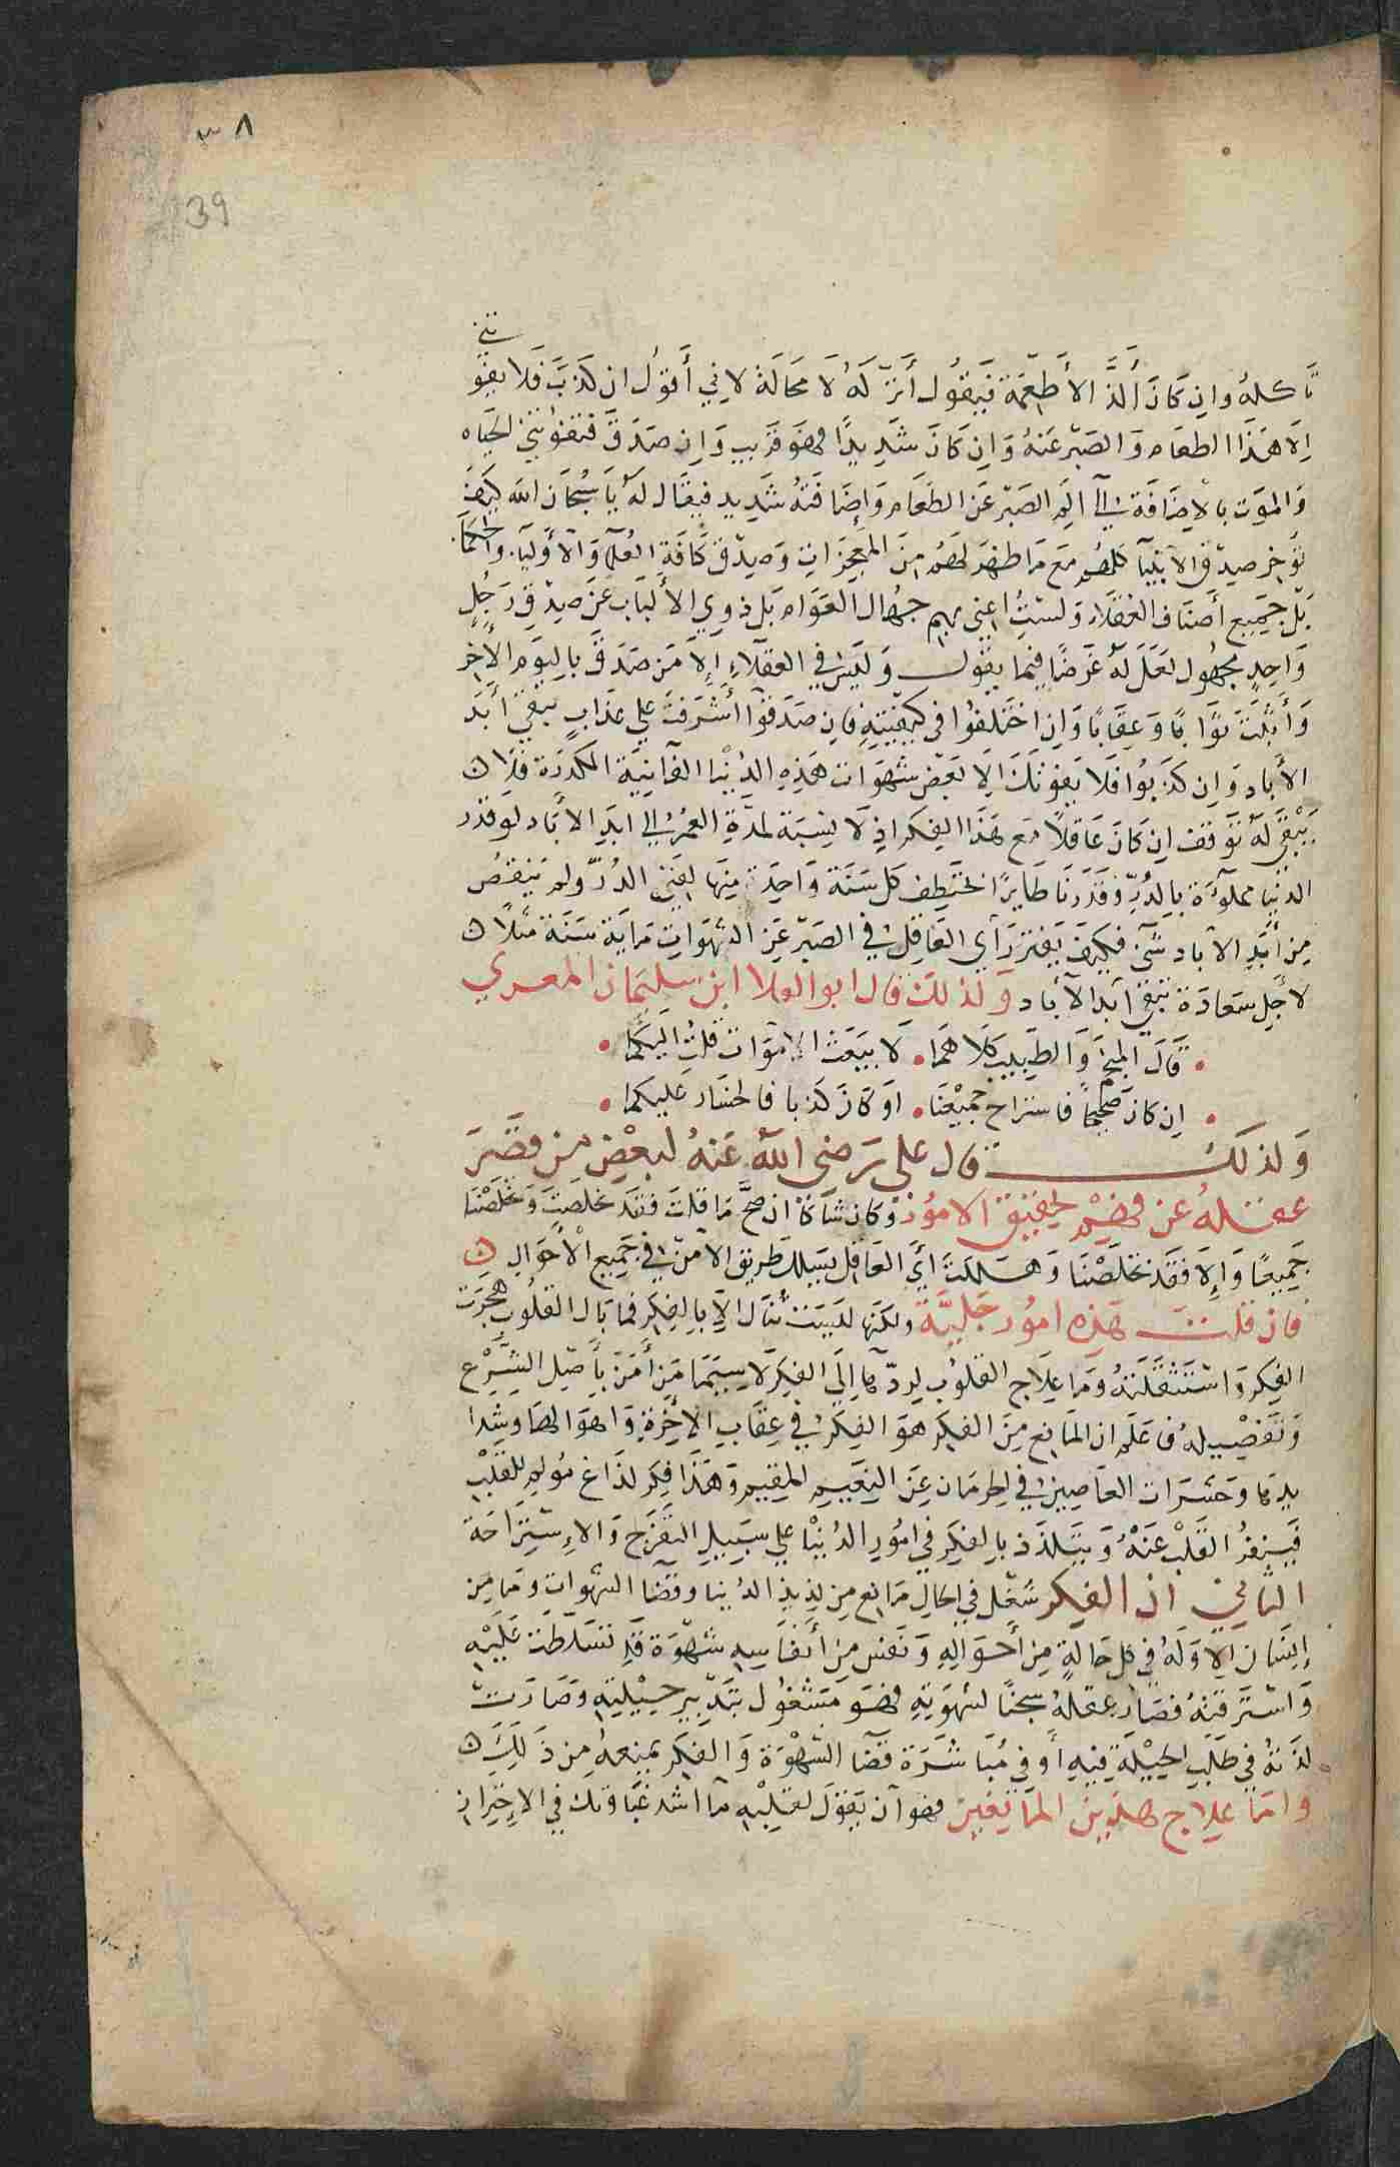 ٣٨
39
تاكله وان كان ألذ الأطعمة فيقول أترك له لا محالة لاني أقول ان كذب فلا يفو
تني
الا هذا الطعام والصبر عنه وان كان شديدا فهو قريب وان صدق فتفوتني الحياه
والموت بالاضافة الي الم الصبر عن الطعام واضافته شديد فيقال له يا سبحان الله كيف
تؤخر صدق الانبيآ كلهم مع ما ظهر لهم من المعجزات وصدق كافة العلمآ والأوليا والحكما
بل جميع أصناف العقلاء ولست اعني بهم جهال العوام بل ذوي الألباب عن صدق رجل
واحد مجهول لعل له غرضا فيما يقول وليس في العقلآء إلا من صدق باليوم الآخر
وأثبت ثوابا وعقابا وان اختلفوا في كيفيته فان صدقوا أشرفت علي عذاب يبقي أبد
الأباد وان كذبوا فلا يفوتك الا بعض شهوات هذه الدنيا الفانية المكدرة فلا
يبقي له توقف ان كان عاقلا مع هذا الفكر اذ لا نسبة لمدة العمر الي ابد الأباد لو قدر
الدنيا مملوءة بالدر وقدرنا طايرا يختطف كل سنة واحدة منها لفني الدر ولم ينقص
من أبد الآباد شئ فكيف يفتر رأي العاقل في الصبر عن الشهوات ماية سنة مثلا
لأجل سعادة تبقي أبد الآباد ولذلك قال ابو العلا ابن سليمان المعري
قال المنجم والطبيب كلاهما لا يبعث الاموات قلت اليكما
ان كان صحيحا فاستراح جميعنا او كان كذبا فالخسار عليكما
ولذلك قال علي رضي الله عنه لبعض من قصر
عقله عن فهم تحقيق الامور وكان شاكا ان صح ما قلت فقد تخلصت وتخلصنا
جميعا وإلا فقد تخلصنا وهلكت أي العاقل يسلك طريق الأمن في جميع الأحوال
فان قلت هذه امور جلية ولكنها ليست تنال الا بالفكر فما بال القلوب هجرت
الفكر واستثقلته وما علاج القلوب لردها إلي الفكر لا سيما من أمن بأصل الشرع
وتفصيله فاعلم ان المانع من الفكر هو الفكر في عقاب الآخرة واهوالها وشدا
يدها وحسرات العاصين في الحرمان عن النعيم المقيم وهذا فكر لذاع مولم للقلب
فينفر القلب عنه ويتلذذ بالفكر في امور الدنيا علي سبيل التفرج والإستراحة
الثاني ان الفكر شغل في الحال مانع من لذيذ الدنيا وقضآ الشهوات وما من
إنسان الا وله في كل حالة من أحواله ونفس من أنفاسه شهوة قد تسلطت عليه
واسترقته فصار عقله سجنا لشهوته فهو مشغول بتدبير حيلته وصارت
لذته في طلب الحيلة فيه أو في مباشرة قضآ الشهوة والفكر يمنعه من ذلك
واما علاج هذين المانعين فهو أن يقول لقلبه مآ اشد غباوتك في الإحتراز